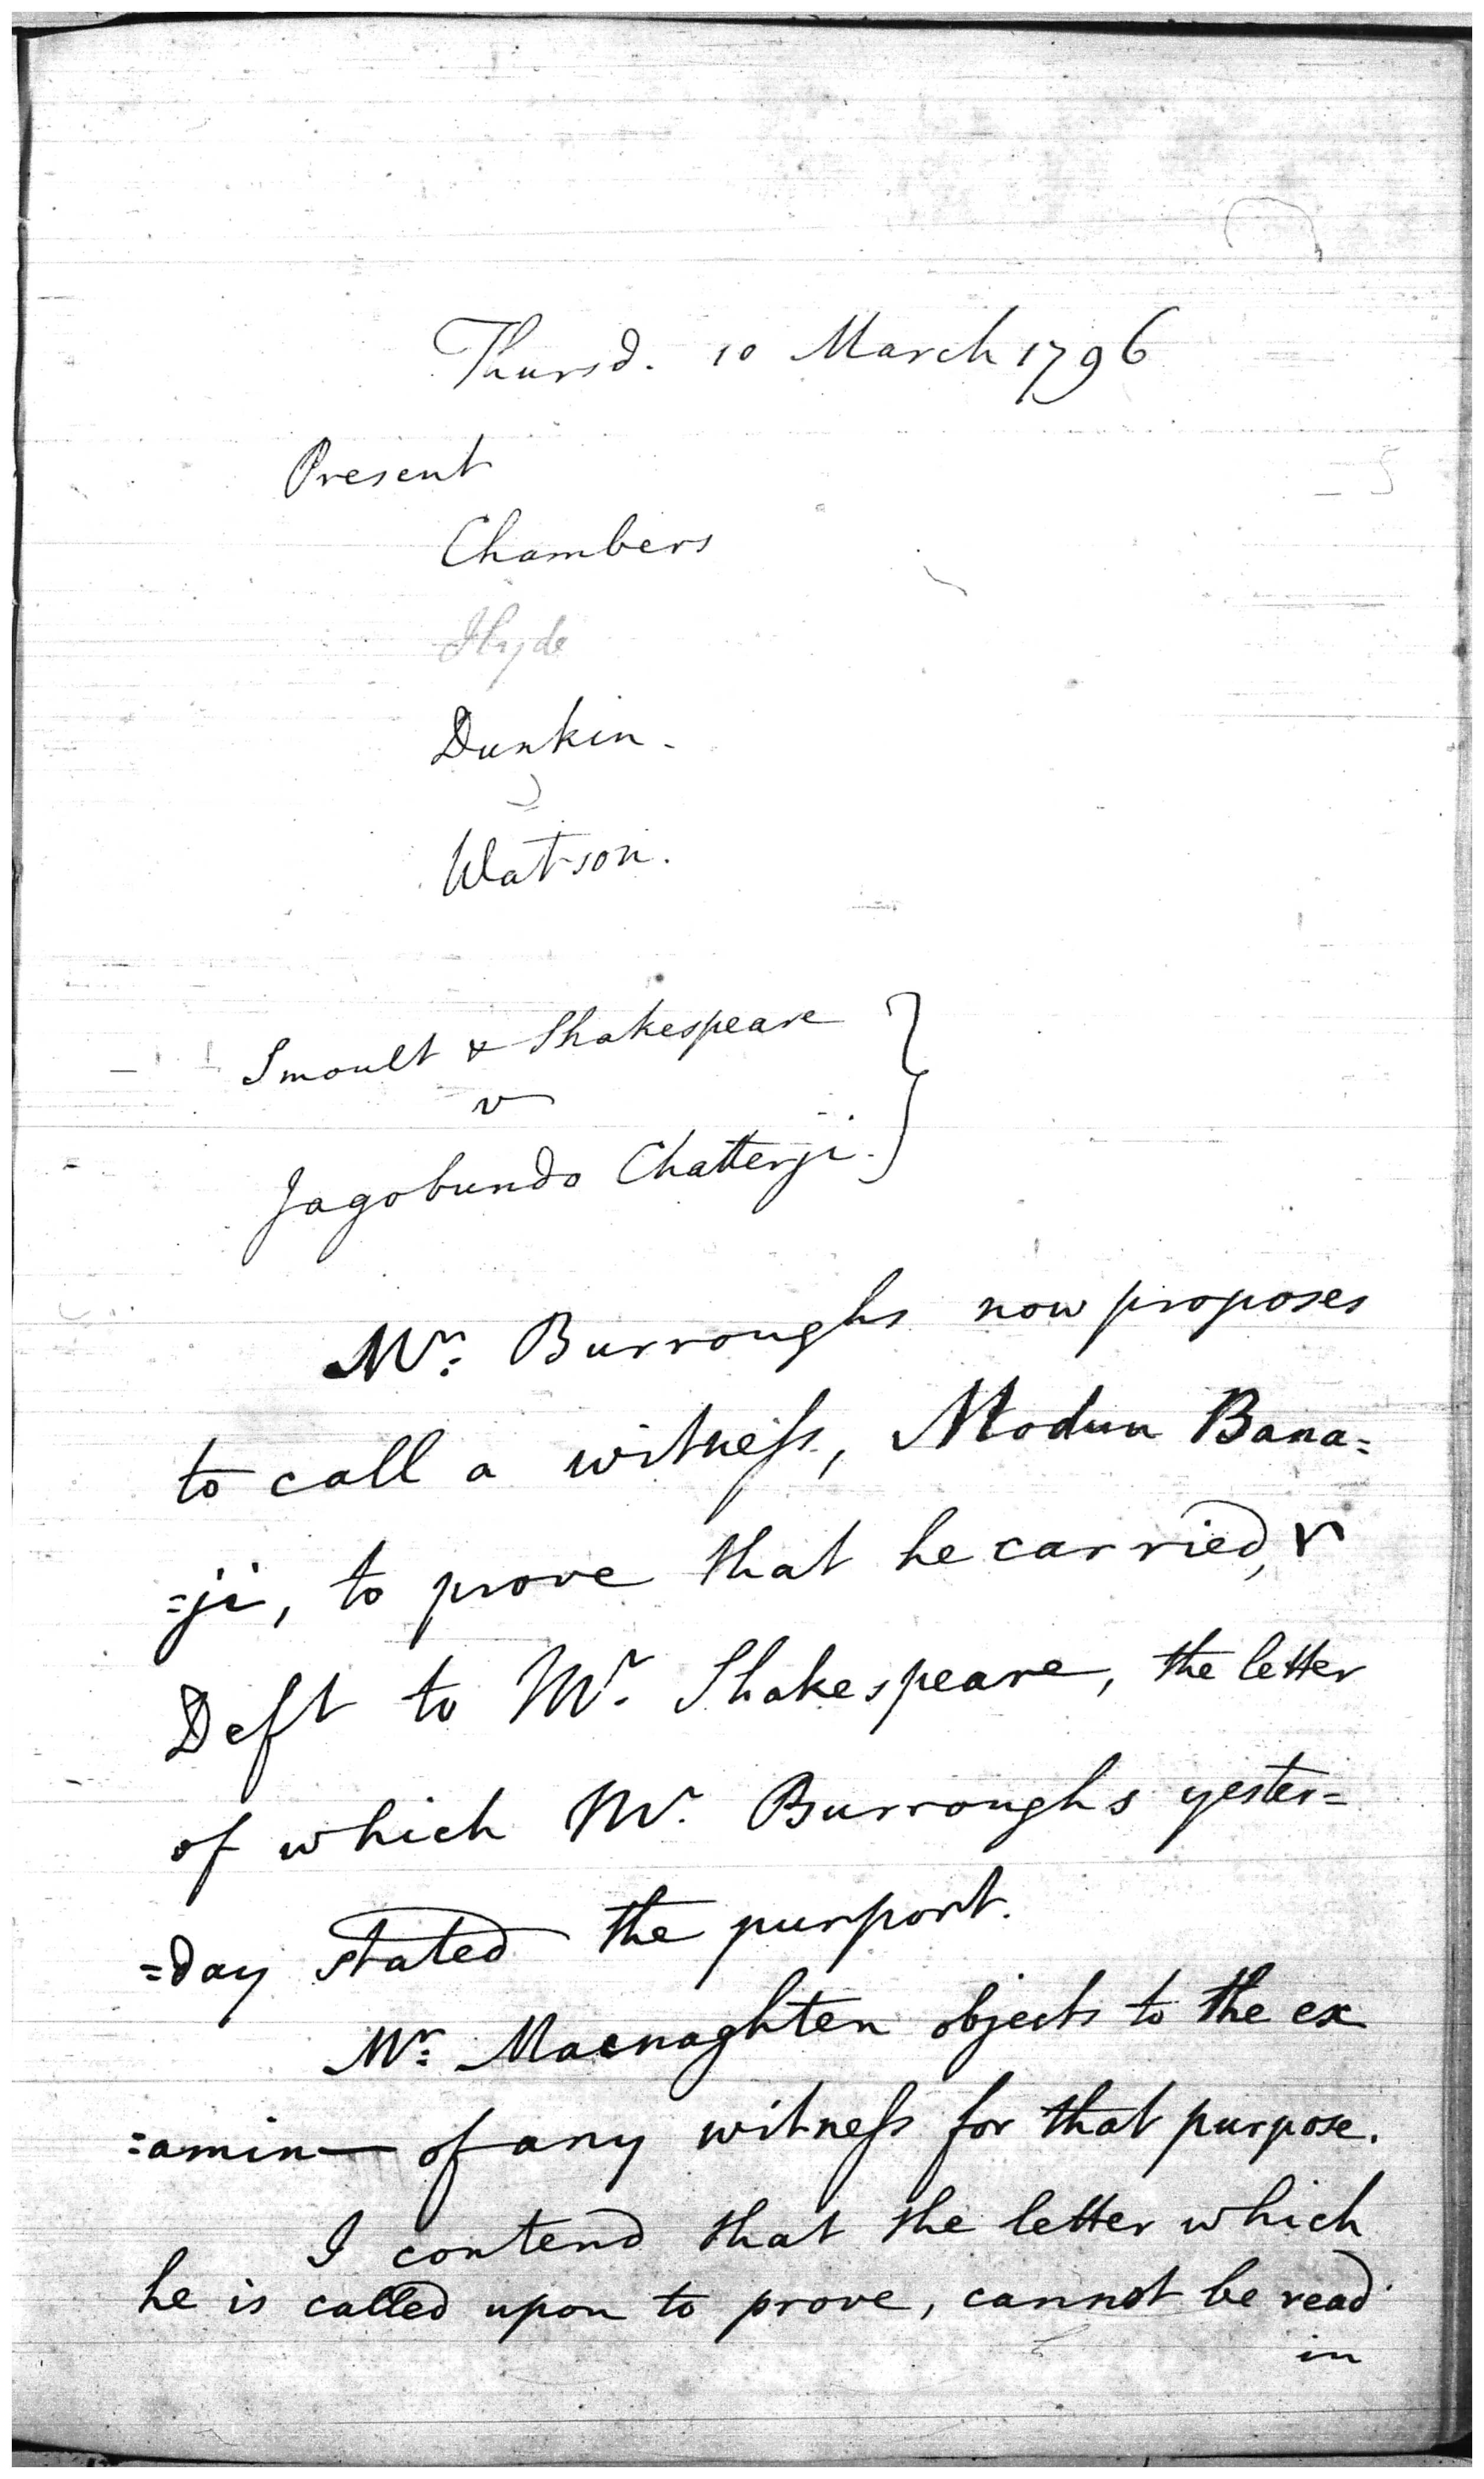 Thursd. 10 March 1796
Present
Chambers
Hyde
Dunkin.
Watson.
Smoult & Shakespeare
v
Jagobundo Chatterji.
Mr. Burroughs now proposes
to call a witness, Modun Bana=
=ji, to prove that he carried,
Deft to Mr. Shakespeare, the letter
of which Mr. Burroughs yester=
=day stated the purport.
Mr. Macnaghten objects to the ex
=amin— of any witness for that purpose.
I contend that the letter which
he is called upon to prove, cannot be read
in